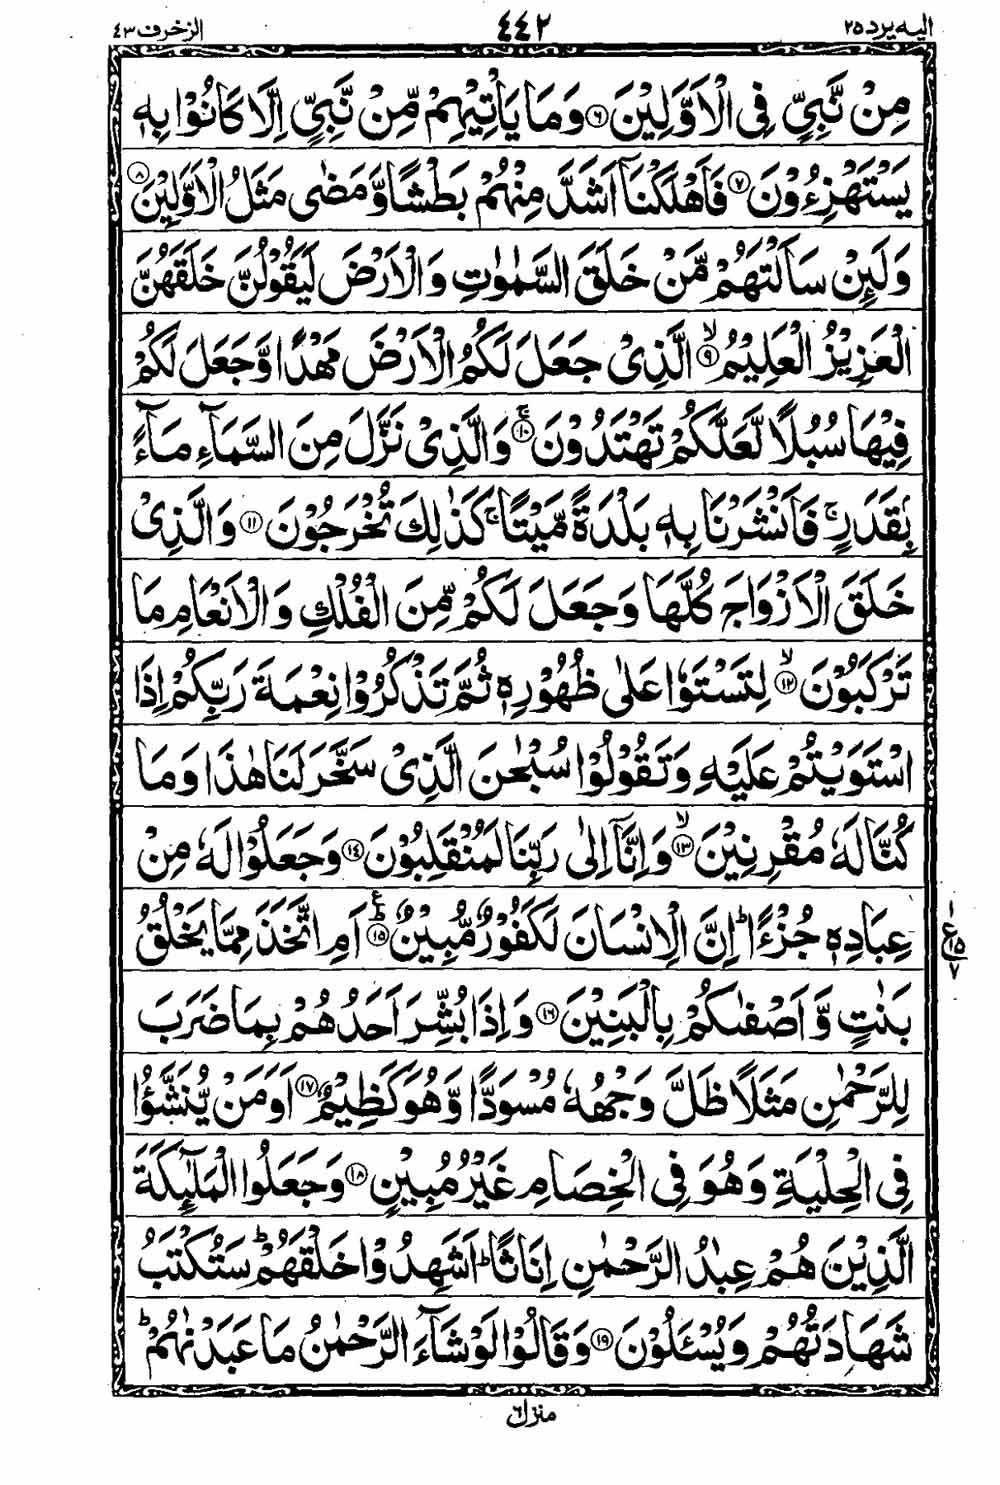 اليه يرد ٢٥ ٤٤٢ الزخرف ٤٣
مِنْ نَّبِيٍّ فِي الْاَوَّلِيْنَ ۝٦ وَمَا يَاْتِيْهِمْ مِّنْ نَّبِيٍّ اِلَّا كَانُوْا بِهٖ
يَسْتَهْزِءُوْنَ ۝٧ فَاَهْلَكْنَاۤ اَشَدَّ مِنْهُمْ بَطْشًا وَّمَضٰى مَثَلُ الْاَوَّلِيْنَ ۝٨
وَلَئِنْ سَاَلْتَهُمْ مَّنْ خَلَقَ السَّمٰوٰتِ وَالْاَرْضَ لَيَقُوْلُنَّ خَلَقَهُنَّ
الْعَزِيْزُ الْعَلِيْمُ ۝٩ۙ الَّذِيْ جَعَلَ لَكُمُ الْاَرْضَ مَهْدًا وَّجَعَلَ لَكُمْ
فِيْهَا سُبُلًا لَّعَلَّكُمْ تَهْتَدُوْنَ ۝١٠ۚ وَالَّذِيْ نَزَّلَ مِنَ السَّمَآءِ مَآءًۢ
بِقَدَرٍ ۚ فَاَنْشَرْنَا بِهٖ بَلْدَةً مَّيْتًا ۚ كَذٰلِكَ تُخْرَجُوْنَ ۝١١ وَالَّذِيْ
خَلَقَ الْاَزْوَاجَ كُلَّهَا وَجَعَلَ لَكُمْ مِّنَ الْفُلْكِ وَالْاَنْعَامِ مَا
تَرْكَبُوْنَ ۝١٢ۙ لِتَسْتَوٗا عَلٰى ظُهُوْرِهٖ ثُمَّ تَذْكُرُوْا نِعْمَةَ رَبِّكُمْ اِذَا
اسْتَوَيْتُمْ عَلَيْهِ وَتَقُوْلُوْا سُبْحٰنَ الَّذِيْ سَخَّرَ لَنَا هٰذَا وَمَا
كُنَّا لَهٗ مُقْرِنِيْنَ ۝١٣ۙ وَاِنَّاۤ اِلٰى رَبِّنَا لَمُنْقَلِبُوْنَ ۝١٤ وَجَعَلُوْا لَهٗ مِنْ
عِبَادِهٖ جُزْءًا ؕ اِنَّ الْاِنْسَانَ لَكَفُوْرٌ مُّبِيْنٌ ۝١٥ؕ ع اَمِ اتَّخَذَ مِمَّا يَخْلُقُ
١ ع ١٥ ٧
بَنٰتٍ وَّاَصْفٰىكُمْ بِالْبَنِيْنَ ۝١٦ وَاِذَا بُشِّرَ اَحَدُهُمْ بِمَا ضَرَبَ
لِلرَّحْمٰنِ مَثَلًا ظَلَّ وَجْهُهٗ مُسْوَدًّا وَّهُوَ كَظِيْمٌ ۝١٧ اَوَمَنْ يُّنَشَّؤُا
فِي الْحِلْيَةِ وَهُوَ فِي الْخِصَامِ غَيْرُ مُبِيْنٍ ۝١٨ وَجَعَلُوا الْمَلٰٓئِكَةَ
الَّذِيْنَ هُمْ عِبٰدُ الرَّحْمٰنِ اِنَاثًا ؕ اَشَهِدُوْا خَلْقَهُمْ ؕ سَتُكْتَبُ
شَهَادَتُهُمْ وَيُسْـَٔلُوْنَ ۝١٩ وَقَالُوْا لَوْ شَآءَ الرَّحْمٰنُ مَا عَبَدْنٰهُمْ ؕ
منزل ٦